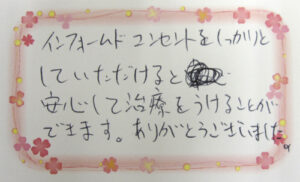 インフォームド コンセントをしっかりと
していただけると
安心して治療をうけることが
できます。ありがとうございました。